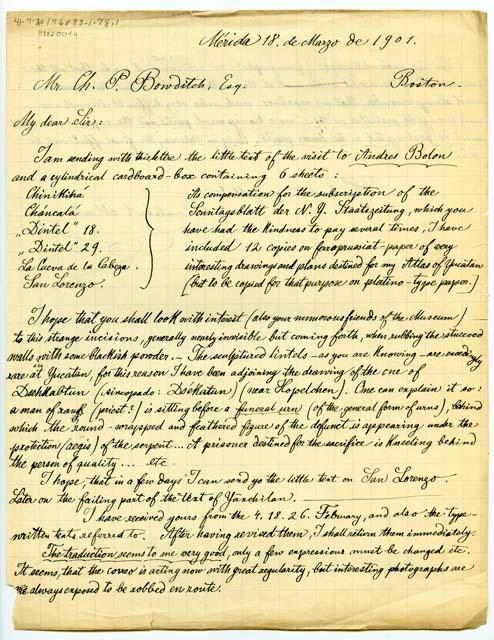 41-7-20/76073.1.78.1
Mérida 18. de Marzo de 1901.
Mr. Ch. P. Bowditch, Esq. Boston.
My dear Sir:
I am sending with this lettre the little text of the visit to Andres Bolon
and a cylindrical cardboard-box containing 6 sheets:
Chinikihá
Chancala
„Dintel" 18.
„Dintel" 29.
La Cueva de la Cabeza.
San Lorenzo.
As compensation for the subscription of the
Sonntagsblatt der N. Y. Staatszeitung, which you
have had the kindness to pay several times, I have
included 12 copies on ferroprussiat-paper of very
interesting drawings and plans destined for my Atlas of Yucatan
(but to be copied for that purpose on platino-type paper.)
I hope that you shall look with interest (also your numerous friends of the Museum)
to this strange incisions, generally nearly invisible but coming forth, when rubbing the stuccoed
walls with some blackish powder. — The sculptured lintels - as you are knowing - are exceedingly
rare in Yucatan, for this reason I have been adjoining the drawing of the one of
Dsehkabtun (sincopado: Dsekatun) (near Hopelchen). One can explain it so:
a man of rank (priest?) is sitting before a funeral urn (of the general form of urns), behind
which the round-wrapped and feathered figure of the defunct is appearing under the
protection (aegis) of the serpent... A prisoner destined for the sacrifice is kneeling behind
the person of quality... etc.
I hope, that in a few days I can send yo the little text on San Lorenzo.
Later on the failing part of the text of Yaxchilan.
I have received yours from the 4. 18. 26. February, and also the type-
written texts referred to. After having revised them, I shall return them immediately.
The traduction seems to me very good, only a few expressions must be changed etc.
It seems, that the correo is acting now with great regularity, but interesting photographs are
always exposed to be robbed en route.